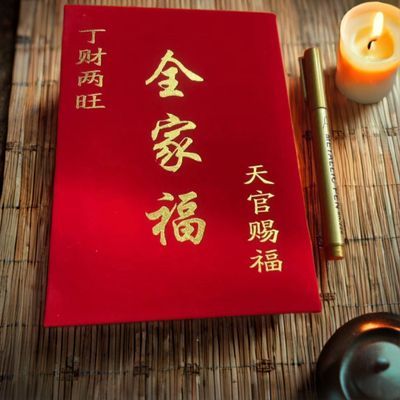 丁财两旺
全家福
天官赐福
METALLIC PEN